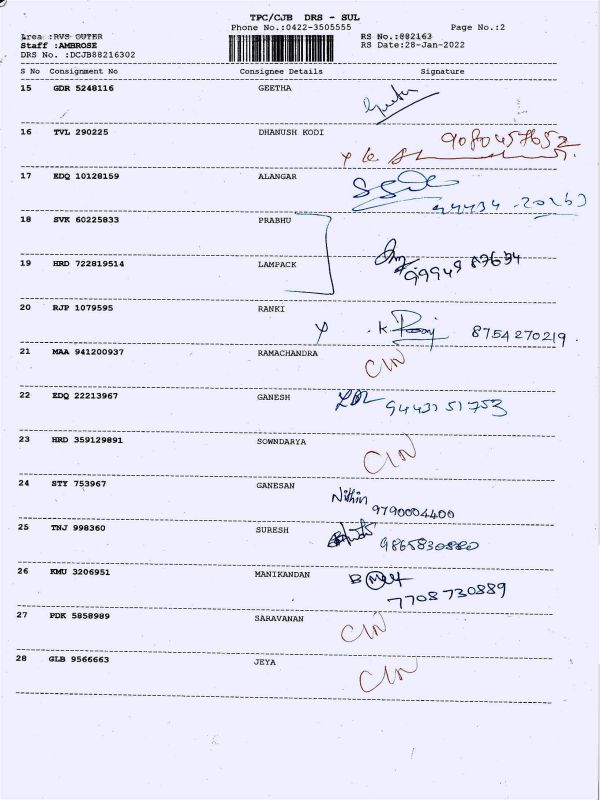 TPC/CJB DRS - SUL
Phone No.:0422-3505555 Page No.:2
Area :RVS OUTER RS No.:882163
Staff :AMBROSE RS Date:28-Jan-2022
DRS No. :DCJB88216302
S No Consignment No Consignee Details Signature
15 GDR 5248116 GEETHA
Geetha
16 TVL 290225 DHANUSH KODI 9080457652
17 EDQ 10128159 ALANGAR
94434 20263
18 SVK 60225833 PRABHU
19 HRD 722819514 LAMPACK 99949 87634
20 RJP 1079595 RANKI
K. 8754270219.
21 MAA 941200937 RAMACHANDRA CIN
22 EDQ 22213967 GANESH 9443151753
23 HRD 359129891 SOWNDARYA CIN
24 STY 753967 GANESAN Nithin
9790004400
25 TNJ 998360 SURESH 9865830880
26 KMU 3206951 MANIKANDAN
7708730889
27 PDK 5858989 SARAVANAN CIN
28 GLB 9566663 JEYA CIN